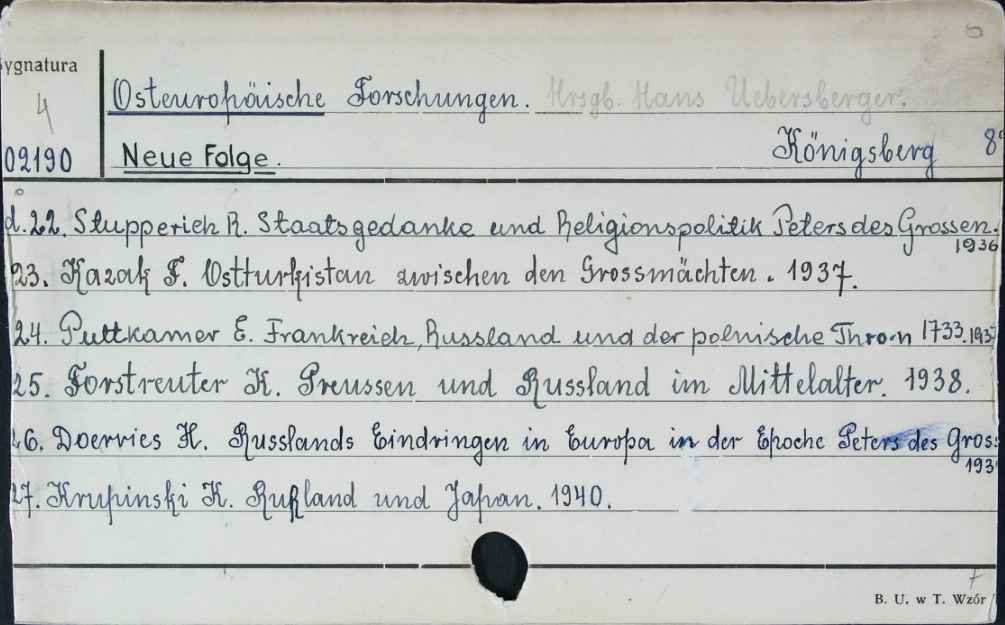 ygnatura
4
02190
Osteuropäische Forschungen. Hrsgb. Hans Uebersberger.
Neue Folge. Königsberg 8°
d. 22. Stupperich R. Staatsgedanke und Religionspolitik Peters des Grossen.
1936
23. Kazak F. Ostturkistan zwischen den Grossmächten. 1937.
24. Puttkamer E. Frankreich, Russland und der polnische Thron 1733. 1937
25. Forstreuter K. Preussen und Russland im Mittelalter. 1938.
26. Doerries H. Russlands Eindringen in Europa in der Epoche Peters des Gros:
193
27. Krupinski K. Rußland und Japan. 1940.
B. U. w T. Wzór